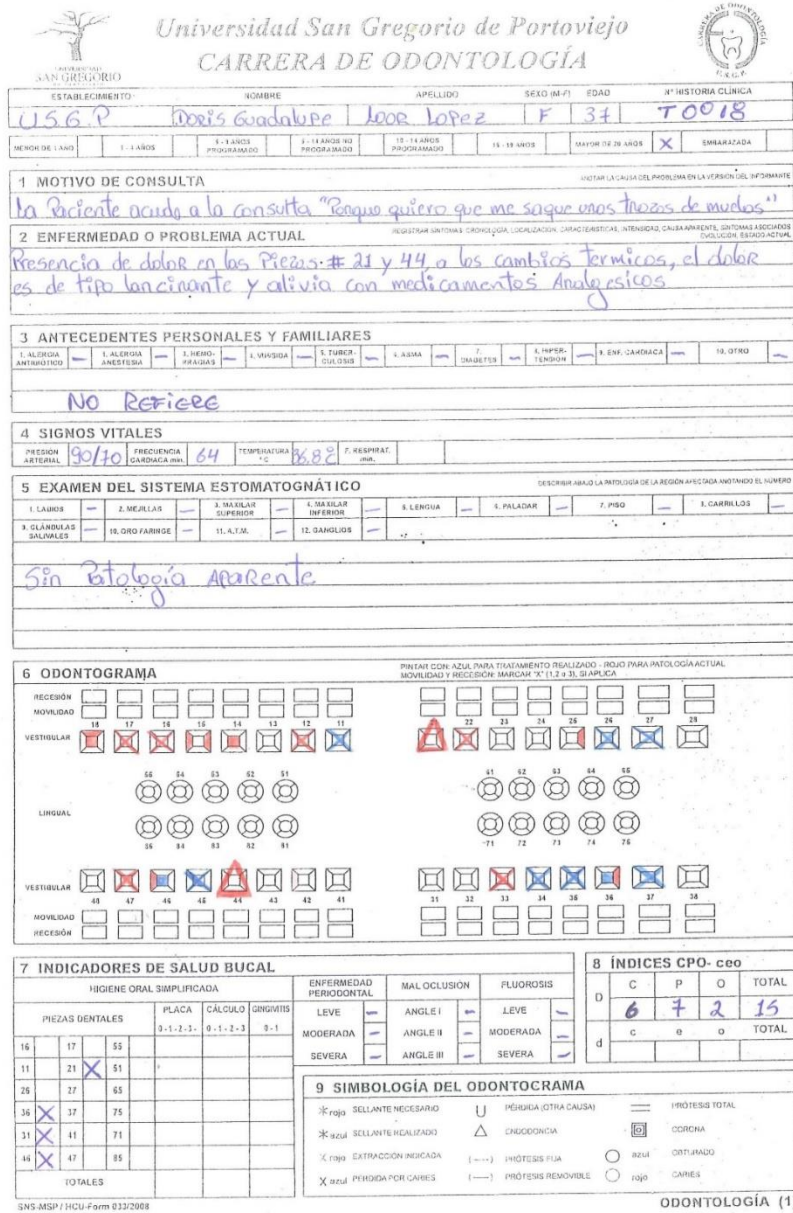 Universidad San Gregorio de Portoviejo
CARRERA DE ODONTOLOGÍA
SAN GREGORIO
ESTABLECIMIENTO NOMBRE APELLIDO SEXO (M-F) EDAD Nº HISTORIA CLÍNICA
U.S.G.P Doris Guadalupe Loor Lopez F 37 T0018
MENOR DE 1 AÑO 1 - 4 AÑOS 5 - 9 AÑOS PROGRAMADO 5 - 14 AÑOS NO PROGRAMADO 10 - 14 AÑOS PROGRAMADO 15 - 19 AÑOS MAYOR DE 20 AÑOS X EMBARAZADA
1 MOTIVO DE CONSULTA ANOTAR LA CAUSA DEL PROBLEMA EN LA VERSIÓN DEL INFORMANTE
La Paciente acude a la consulta "Porque quiero que me saque unos trozos de muelas"
2 ENFERMEDAD O PROBLEMA ACTUAL REGISTRAR SINTOMAS: CRONOLOGÍA, LOCALIZACIÓN, CARACTERÍSTICAS, INTENSIDAD, CAUSA APARENTE, SINTOMAS ASOCIADOS
EVOLUCIÓN, ESTADO ACTUAL
Presencia de dolor en las Piezas # 21 y 44 a los cambios termicos, el dolor
es de tipo lancinante y alivia con medicamentos Analgesicos
3 ANTECEDENTES PERSONALES Y FAMILIARES
1. ALERGIA ANTIBIÓTICO - 2. ALERGIA ANESTESIA - 3. HEMO-RRAGIAS - 4. VIH/SIDA - 5. TUBER-CULOSIS - 6. ASMA - 7. DIABETES - 8. HIPER-TENSIÓN - 9. ENF. CARDIACA - 10. OTRO -
NO REFIERE
4 SIGNOS VITALES
PRESIÓN ARTERIAL 90/70 FRECUENCIA CARDIACA min. 64 TEMPERATURA °C 36.8º F. RESPIRAT. min.
5 EXAMEN DEL SISTEMA ESTOMATOGNÁTICO DESCRIBIR ABAJO LA PATOLOGÍA DE LA REGIÓN AFECTADA ANOTANDO EL NÚMERO
1. LABIOS - 2. MEJILLAS - 3. MAXILAR SUPERIOR - 4. MAXILAR INFERIOR - 5. LENGUA - 6. PALADAR - 7. PISO - 8. CARRILLOS -
9. GLÁNDULAS SALIVALES - 10. ORO FARINGE - 11. A.T.M. - 12. GANGLIOS -
Sin Patología Aparente
6 ODONTOGRAMA PINTAR CON: AZUL PARA TRATAMIENTO REALIZADO - ROJO PARA PATOLOGÍA ACTUAL
MOVILIDAD Y RECESIÓN: MARCAR "X" (1,2 o 3), SI APLICA
RECESIÓN
MOVILIDAD
18 17 16 15 14 13 12 11 22 23 24 25 26 27 28
VESTIBULAR
55 54 53 52 51 61 62 63 64 65
LINGUAL
85 84 83 82 81 71 72 73 74 75
VESTIBULAR
48 47 46 45 44 43 42 41 31 32 33 34 35 36 37 38
MOVILIDAD
RECESIÓN
7 INDICADORES DE SALUD BUCAL
HIGIENE ORAL SIMPLIFICADA
PIEZAS DENTALES PLACA CÁLCULO GINGIVITIS
0 - 1 - 2 - 3 - 0 - 1 - 2 - 3 0 - 1
16 17 55
11 21 X 51
26 27 65
36 X 37 75
31 X 41 71
46 X 47 85
TOTALES
ENFERMEDAD PERIODONTAL MAL OCLUSIÓN FLUOROSIS
LEVE - ANGLE I - LEVE -
MODERADA - ANGLE II - MODERADA -
SEVERA - ANGLE III - SEVERA -
8 ÍNDICES CPO- ceo
D C P O TOTAL
6 7 2 15
d c e o TOTAL
9 SIMBOLOGÍA DEL ODONTOCRAMA
rojo SELLANTE NECESARIO U PÉRDIDA (OTRA CAUSA) PRÓTESIS TOTAL
azul SELLANTE REALIZADO ENDODONCIA CORONA
X rojo EXTRACCIÓN INDICADA PRÓTESIS FIJA azul OBTURADO
X azul PÉRDIDA POR CARIES PRÓTESIS REMOVIBLE rojo CARIES
SNS-MSP / HCU-Form 033/2008 ODONTOLOGÍA (1)